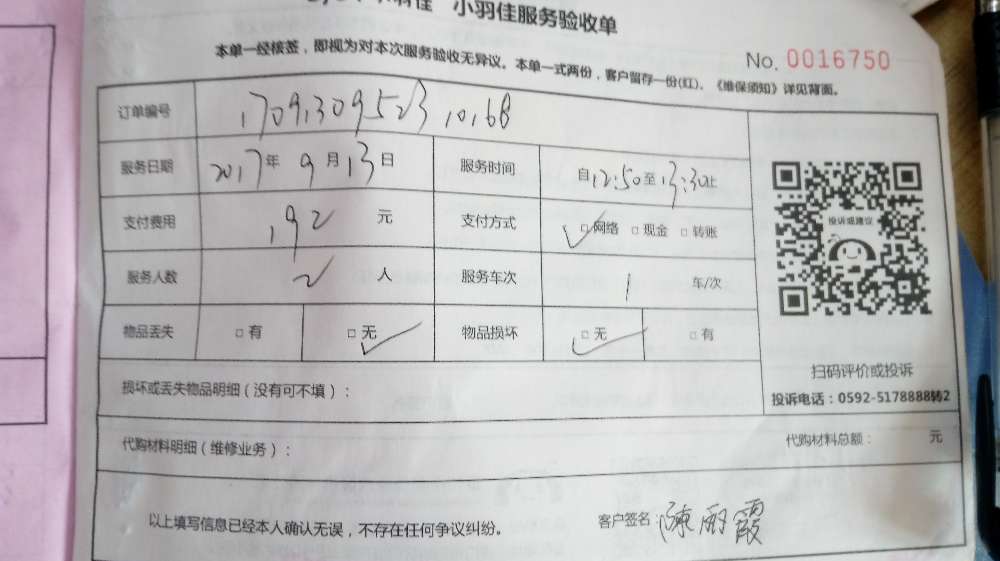 小羽佳服务验收单
本单一经核签，即视为对本次服务验收无异议。本单一式两份，客户留存一份(红)、《维保须知》详见背面。
No. 0016750
订单编号 170913095231068
服务日期 2017年 9月13日 服务时间 自12:50至13:30止
支付费用 192 元 支付方式 □网络 □现金 □转账
服务人数 2 人 服务车次 1 车/次
物品丢失 □有 □无 物品损坏 □无 □有
投诉或建议
扫码评价或投诉
投诉电话：0592-5178888转2
损坏或丢失物品明细（没有可不填）：
代购材料明细（维修业务）： 代购材料总额： 元
以上填写信息已经本人确认无误，不存在任何争议纠纷。 客户签名：陈丽霞